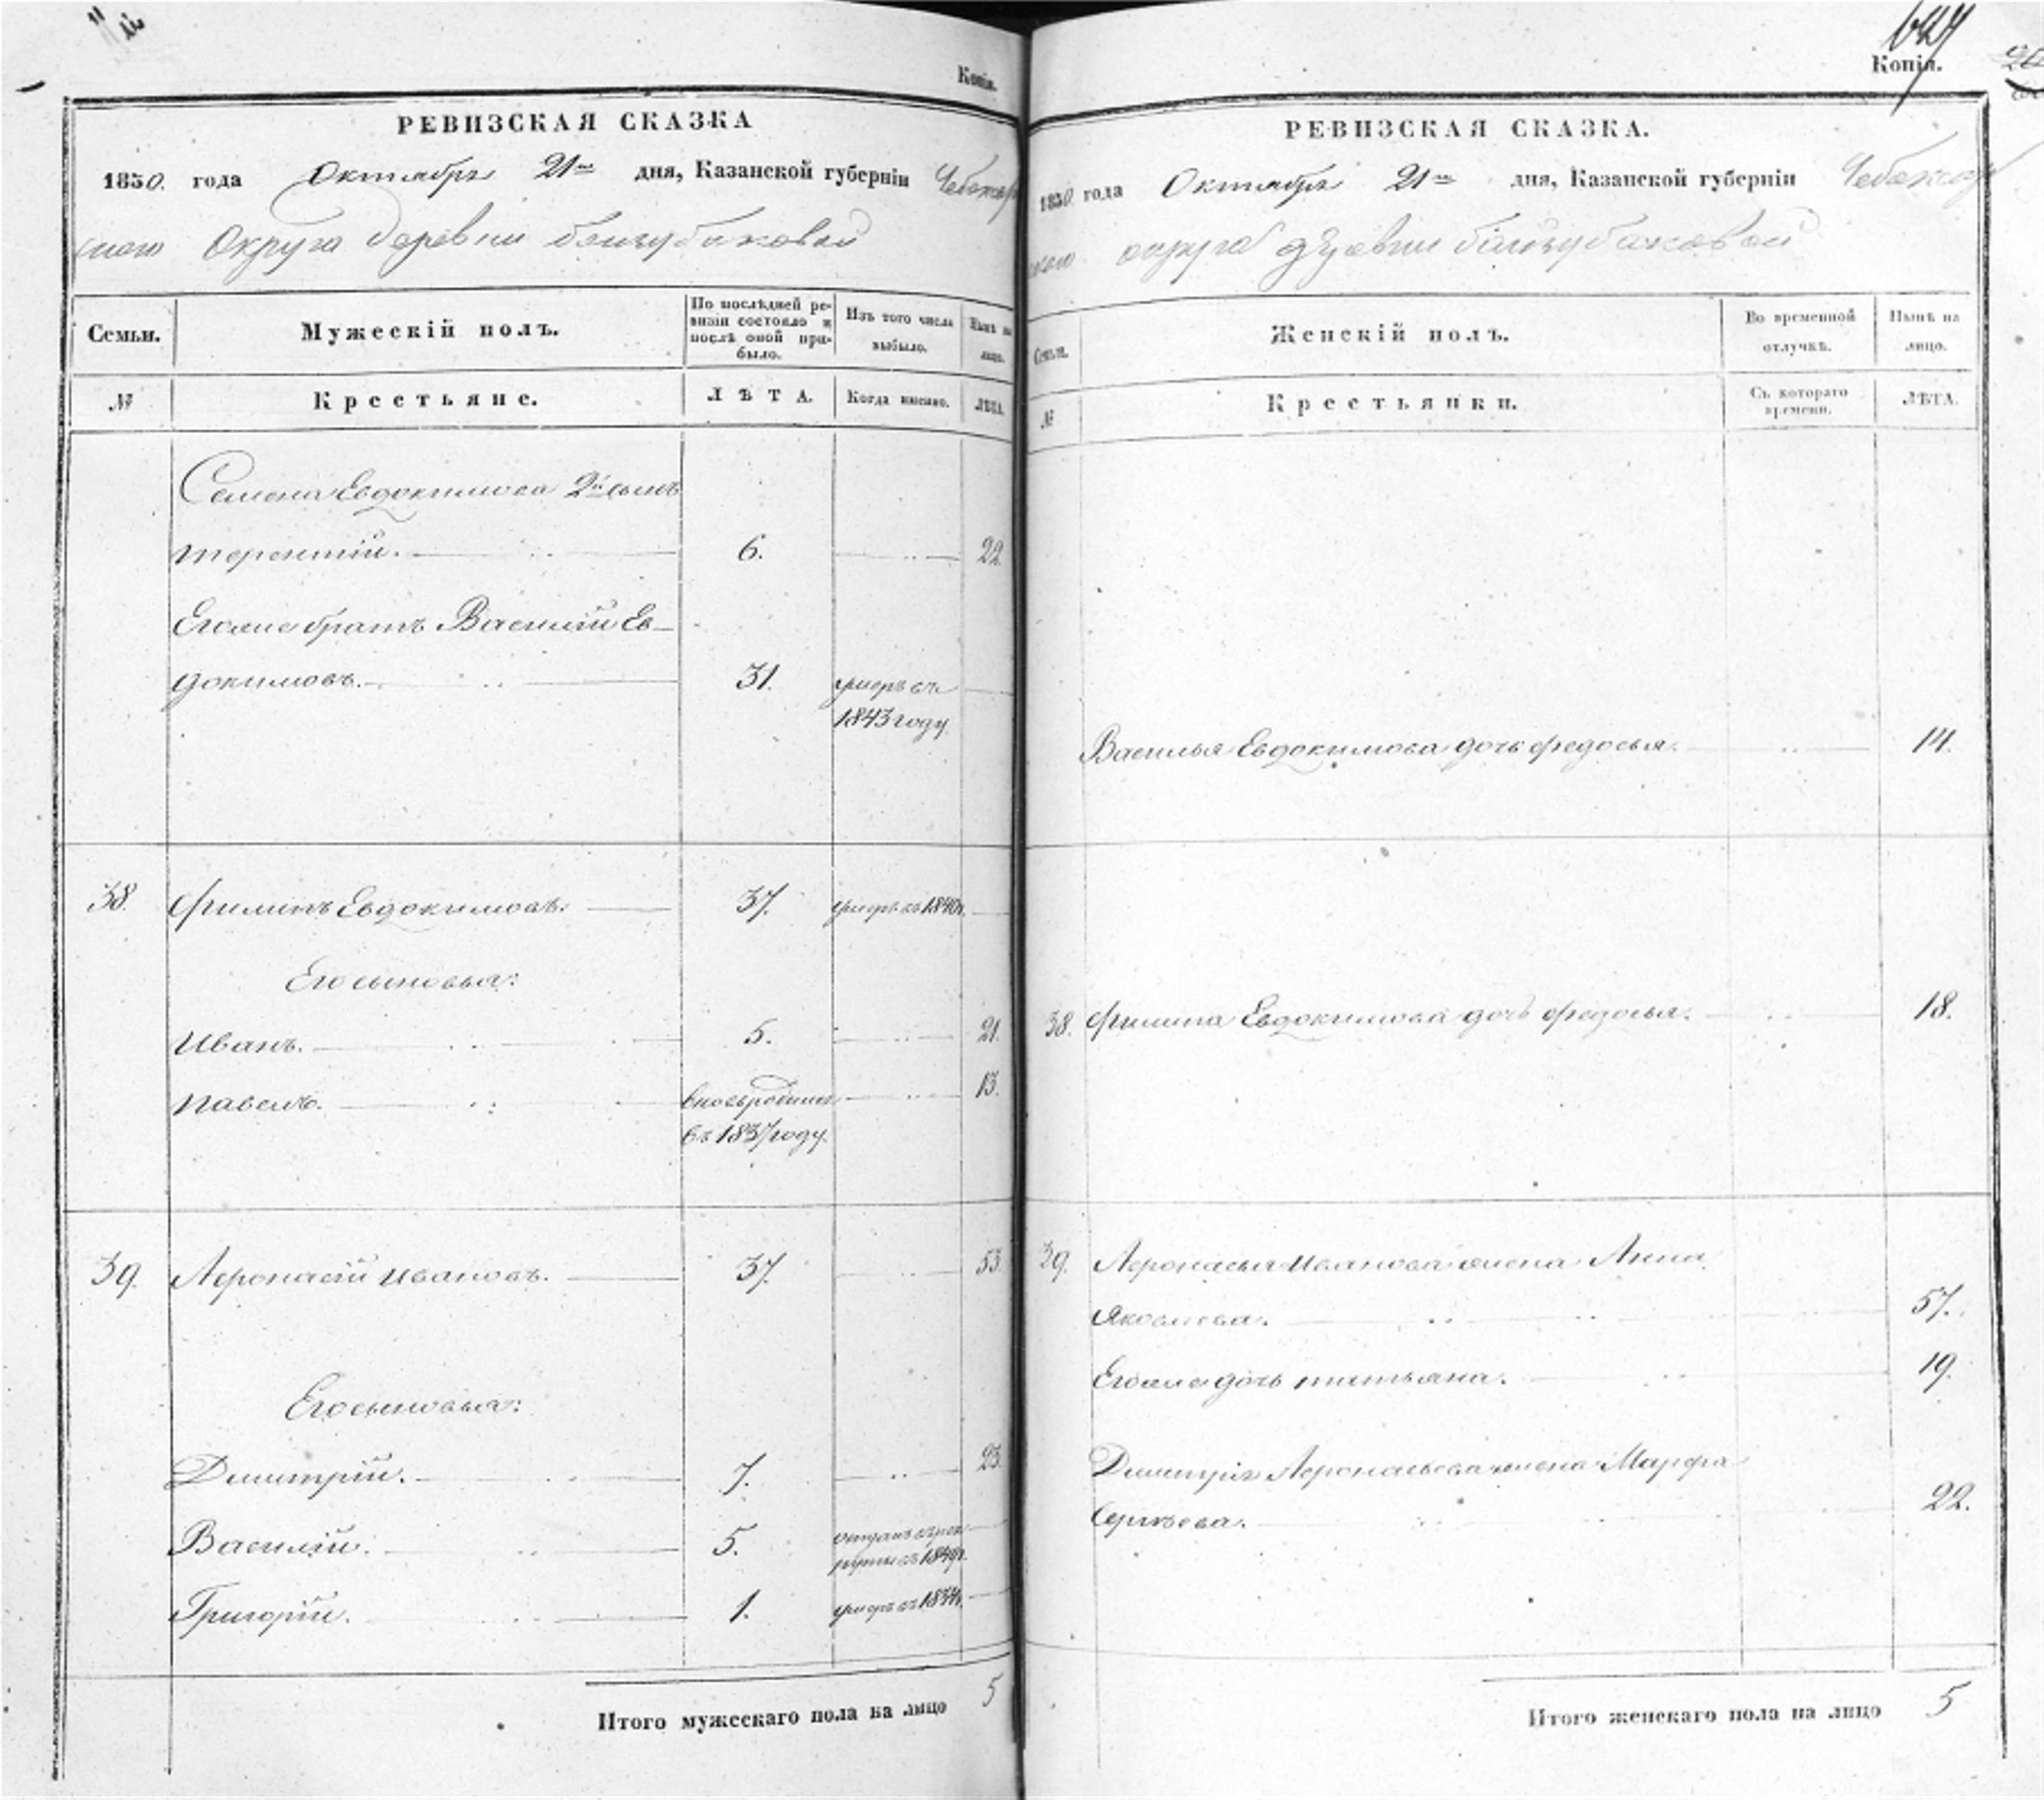 Копія.
РЕВИЗСКАЯ СКАЗКА
1850 года Октября 21го дня, Казанской губерніи Чебоксар
скаго Округа деревни
Семьи.
Мужескій полъ.
По послѣдней ре-
визіи состояло и
послѣ оной при-
было.
Изъ того числа
выбыло.
Нынѣ на
лицо.
№
Крестьяне.
ЛѢТА.
Когда имянно.
ЛѢТА.
Семена Евдокимова 2й сынъ
Терентій. 6. 22.
Егоже братъ Василій Ев-
докимовъ. 31. умеръ въ
1843 году
38. Филипъ Евдокимовъ. 37. умеръ въ 1840г.
Его сыновья:
Иванъ. 5. 21.
Павелъ. вновь родился 13.
въ 1837 году.
39. Афонасій Ивановъ. 37. 53.
Его сыновья:
Димитрій. 7. 23.
Василій. 5. отданъ въ рек
руты въ
Григорій. 1. умеръ въ 1834г.
Итого мужескаго пола на лицо 5
Копія.
РЕВИЗСКАЯ СКАЗКА.
1850 года Октября 21го дня, Казанской губерніи Чебоксар
скаго округа деревни
Семьи.
Женскій полъ.
Во временной
отлучкѣ.
Нынѣ на
лицо.
№
Крестьянки.
Съ котораго
времени.
ЛѢТА.
Василья Евдокимова дочь Федосья. 14.
38. Филипа Евдокимова дочь Федосья. 18.
39. Афонасья Иванова жена Анна
Яковлева. 57.
Егоже дочь Татьяна. 19.
Димитрія Афонасьева жена Марфа
Сергѣева. 22.
Итого женскаго пола на лицо 5